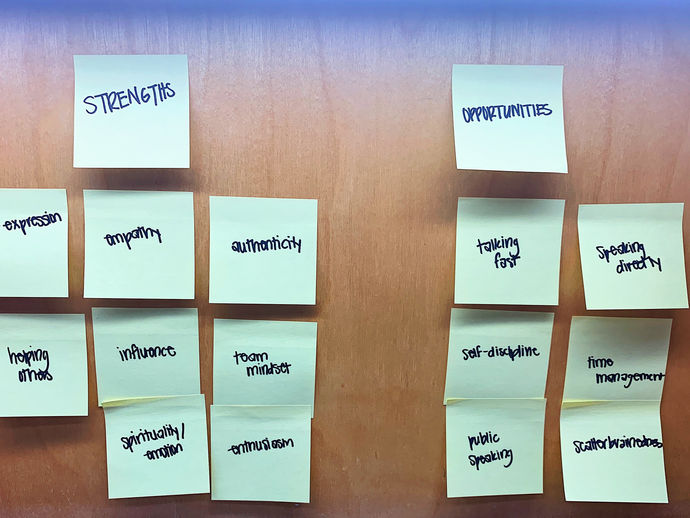 STRENGTHS
OPPORTUNITIES
expression
empathy
authenticity
helping
others
influence
team
mindset
spirituality/
emotion
enthusiasm
talking
fast
speaking
directly
self-discipline
time
management
public
speaking
scatterbrainedness